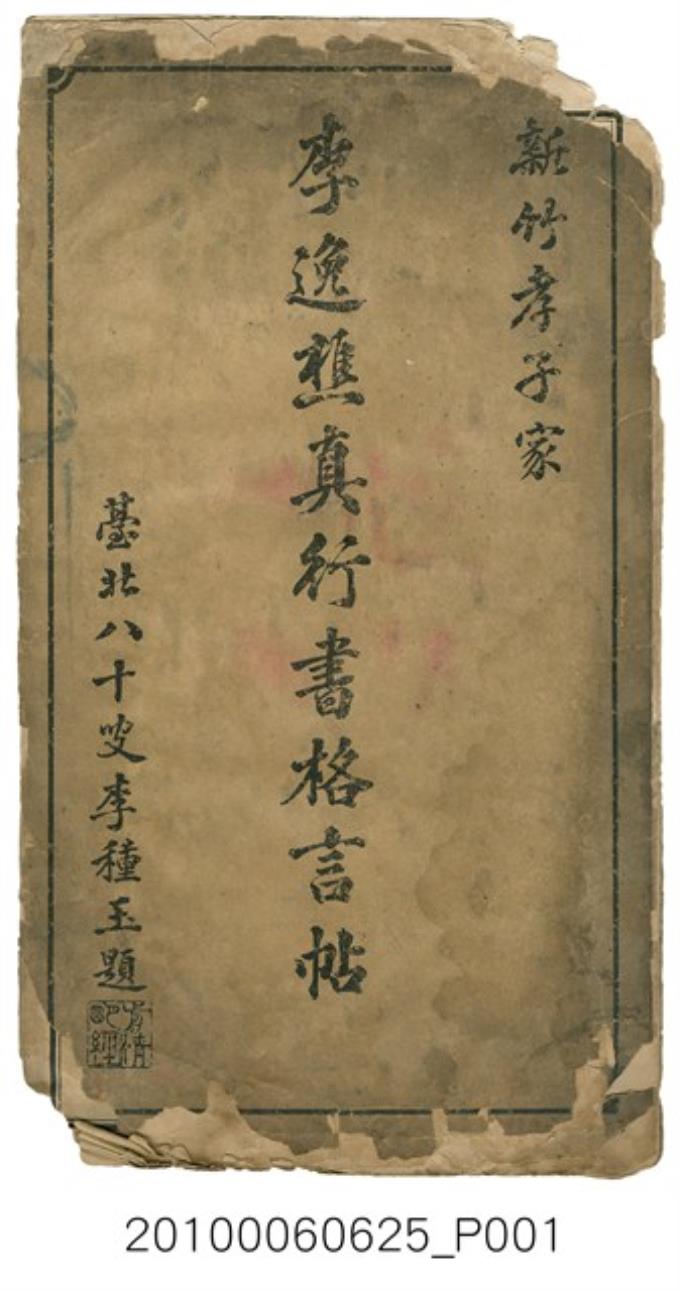 新竹孝子家
李逸樵真行書格言帖
臺北八十叟李種玉題
20100060625_P001